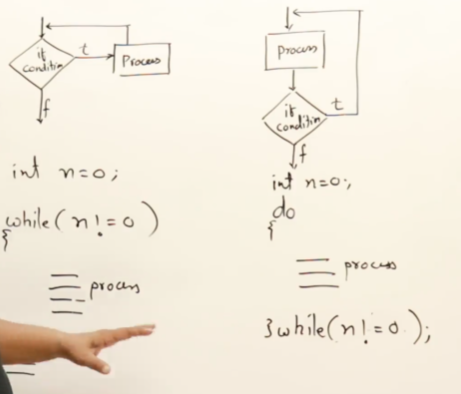 if
condition
t
Process
f
int n=0;
while(n!=0)
{
process
Process
if
condition
t
f
int n=0;
do
{
process
}while(n!=0);